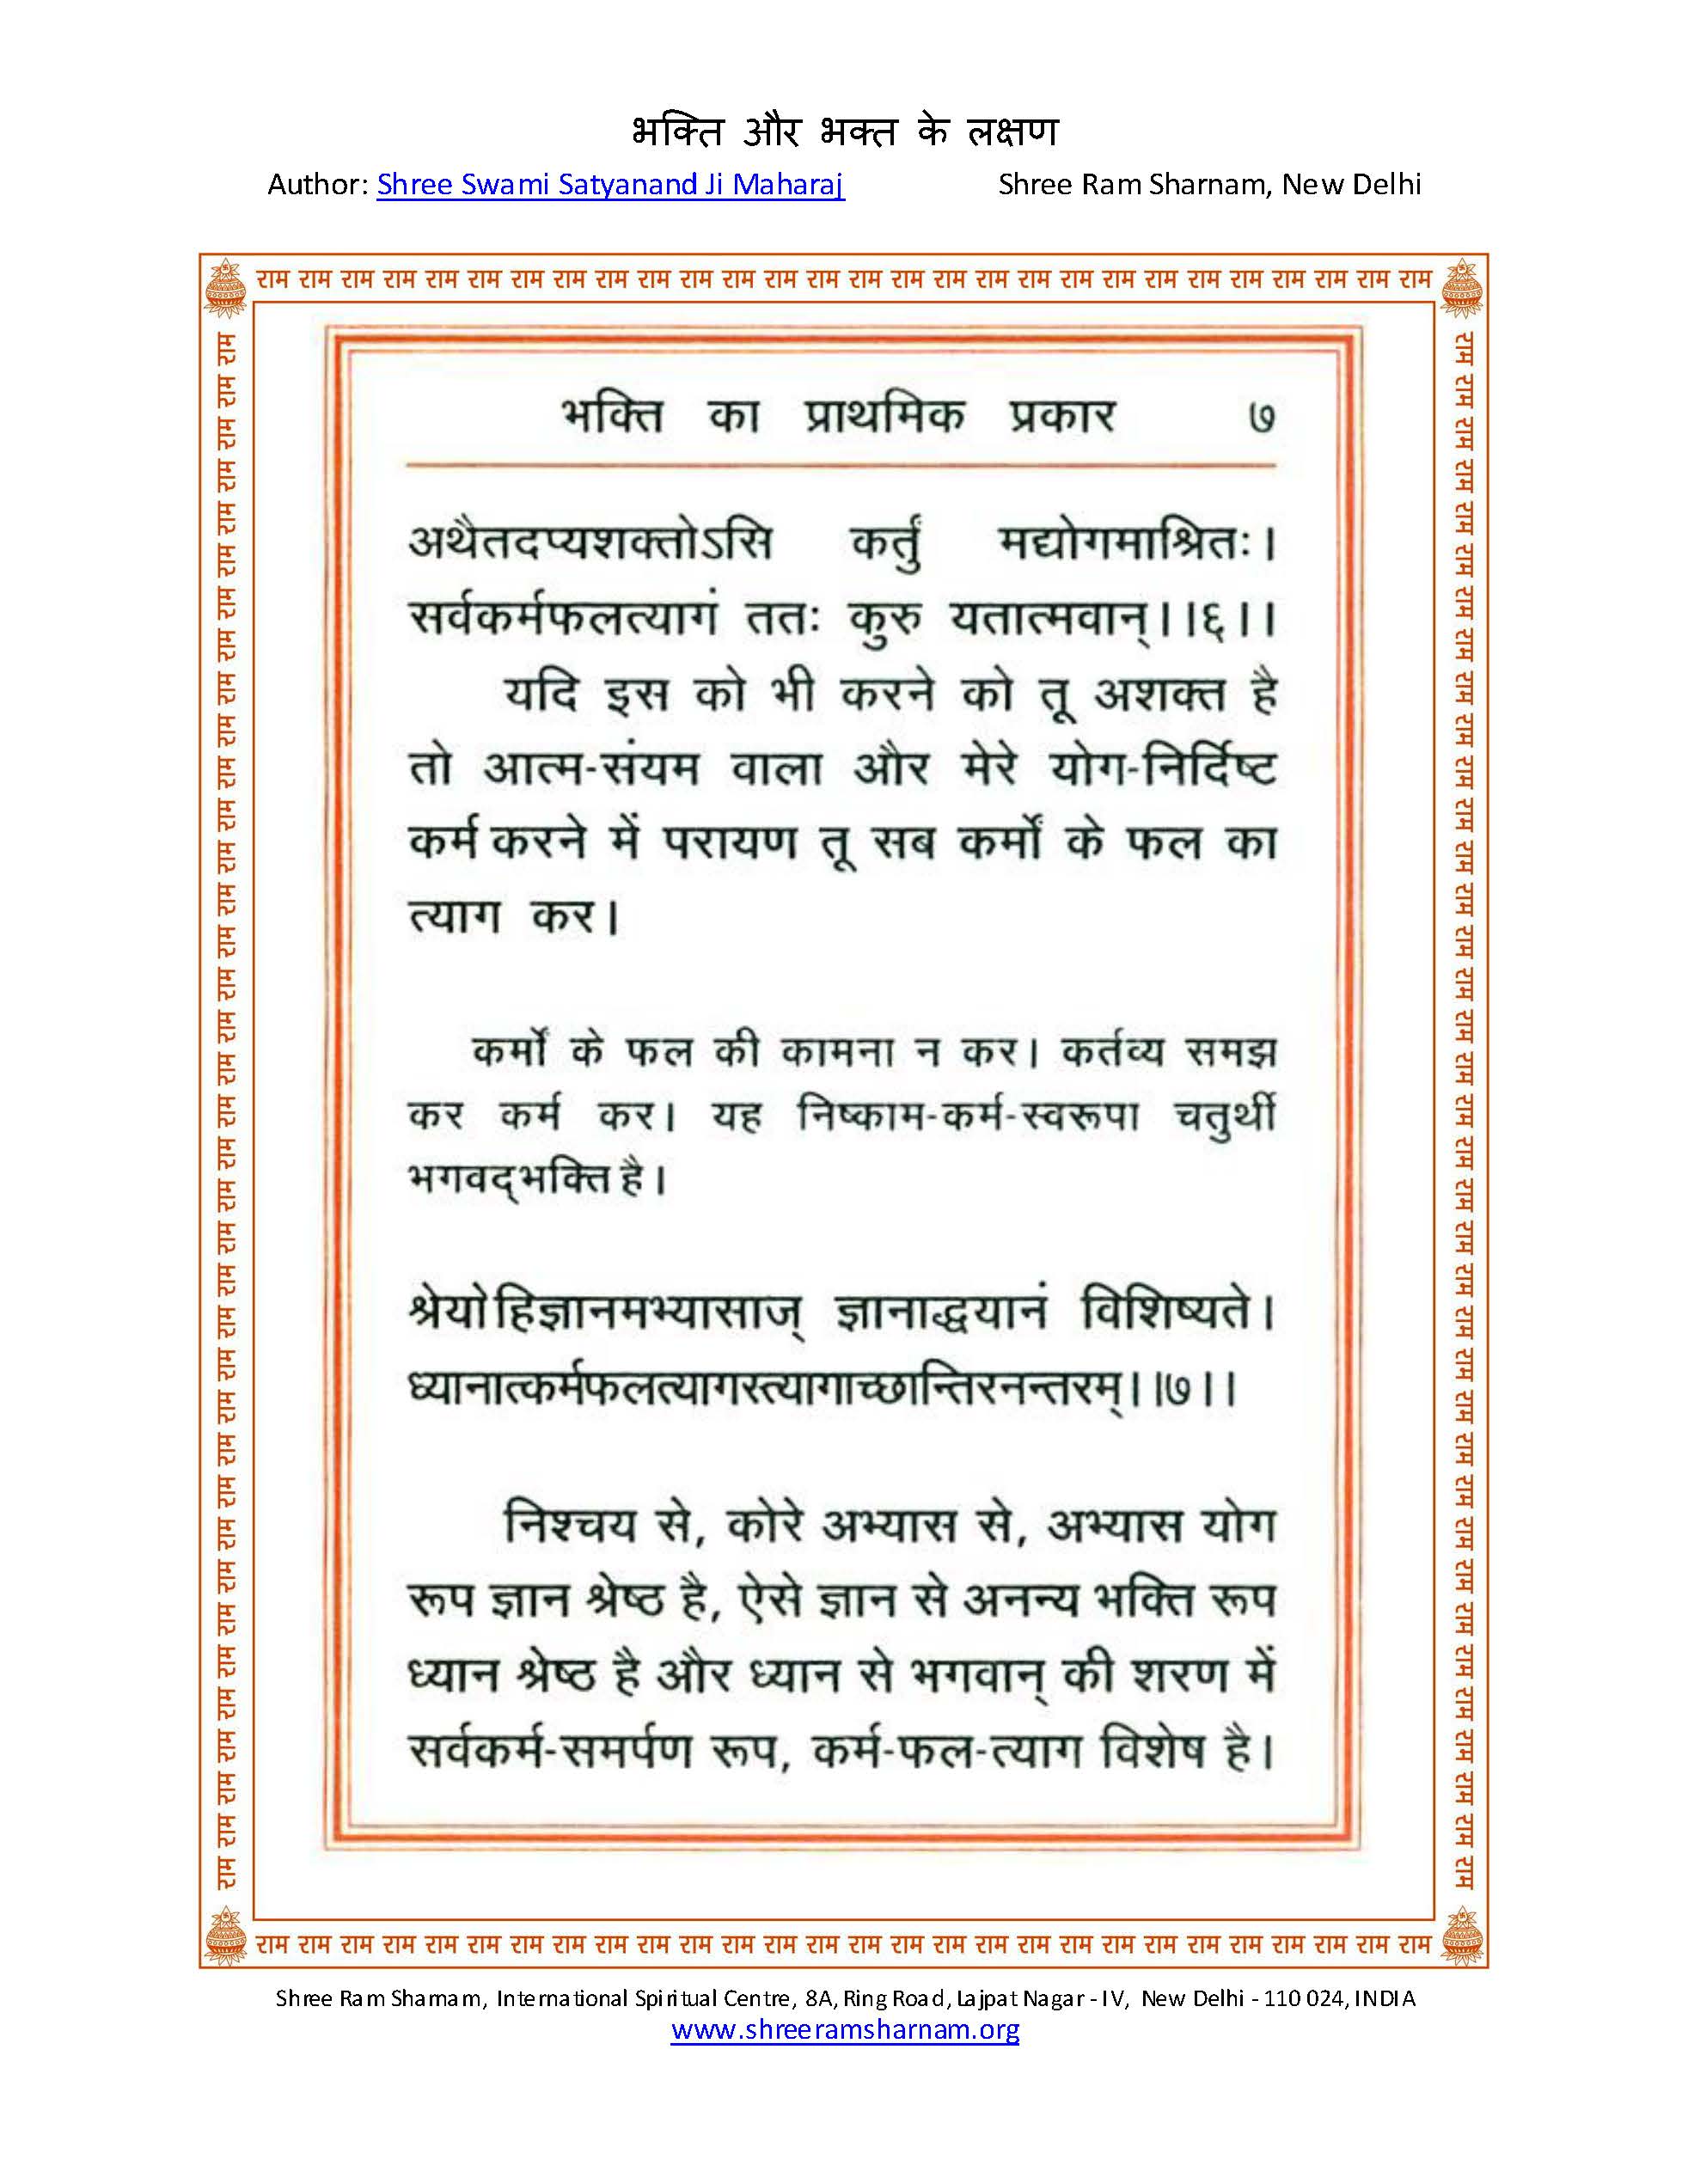 भक्ति और भक्त के लक्षण
Author: Shree Swami Satyanand Ji Maharaj Shree Ram Sharnam, New Delhi
राम राम राम राम राम राम राम राम राम राम राम राम राम राम राम राम राम राम राम राम राम राम राम राम राम राम राम राम
भक्ति का प्राथमिक प्रकार ७
अथैतदप्यशक्तोऽसि कर्तुं मद्योगमाश्रितः।
सर्वकर्मफलत्यागं ततः कुरु यतात्मवान्।।६।।
यदि इस को भी करने को तू अशक्त है
तो आत्म-संयम वाला और मेरे योग-निर्दिष्ट
कर्म करने में परायण तू सब कर्मों के फल का
त्याग कर।
कर्मों के फल की कामना न कर। कर्तव्य समझ
कर कर्म कर। यह निष्काम-कर्म-स्वरूपा चतुर्थी
भगवद्भक्ति है।
श्रेयो हि ज्ञानमभ्यासाज् ज्ञानाद्धयानं विशिष्यते।
ध्यानात्कर्मफलत्यागस्त्यागाच्छान्तिरनन्तरम्।।७।।
निश्चय से, कोरे अभ्यास से, अभ्यास योग
रूप ज्ञान श्रेष्ठ है, ऐसे ज्ञान से अनन्य भक्ति रूप
ध्यान श्रेष्ठ है और ध्यान से भगवान् की शरण में
सर्वकर्म-समर्पण रूप, कर्म-फल-त्याग विशेष है।
राम राम राम राम राम राम राम राम राम राम राम राम राम राम राम राम राम राम राम राम राम राम राम राम राम राम राम राम
Shree Ram Sharnam, International Spiritual Centre, 8A, Ring Road, Lajpat Nagar - IV, New Delhi - 110 024, INDIA
www.shreeramsharnam.org